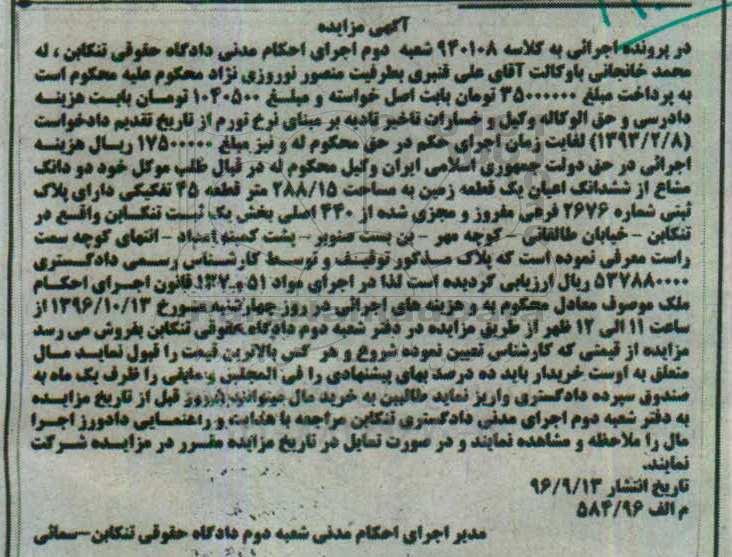 آگهی مزایده
در پرونده اجرائی به کلاسه ۹۴۰۱۰۸ شعبه دوم اجرای احکام مدنی دادگاه حقوقی تنکابن ، له
محمد خانجانی باوکالت آقای علی قنبری بطرفیت منصور نوروزی نژاد محکوم علیه محکوم است
به پرداخت مبلغ ۳۵۰۰۰۰۰۰ تومان بابت اصل خواسته و مبلغ ۱۰۴۰۵۰۰ تومان بابت هزینه
دادرسی و حق الوکاله وکیل و خسارات تاخیر تادیه بر مبنای نرخ تورم از تاریخ تقدیم دادخواست
(۱۳۹۳/۲/۸) لغایت زمان اجرای حکم در حق محکوم له و نیز مبلغ ۱۷۵۰۰۰۰۰ ریال هزینه
اجرائی در حق دولت جمهوری اسلامی ایران وکیل محکوم له در قبال طلب موکل خود دو دانک
مشاع از ششدانک اعیان یک قطعه زمین به مساحت ۲۸۸/۱۵ متر قطعه ۴۵ تفکیکی دارای پلاک
ثبتی شماره ۲۶۷۶ فرعی مفروز و مجزی شده از ۴۴۰ اصلی بخش یک ثبت تنکابن واقع در
تنکابن - خیابان طالقانی - کوچه مهر - بن بست صنوبر - پشت کمیته امداد - انتهای کوچه سمت
راست معرفی نموده است که پلاک مذکور توقیف و توسط کارشناس رسمی دادگستری
۵۳۷۸۸۰۰۰۰ ریال ارزیابی گردیده است لذا در اجرای مواد ۵۱ و ۱۳۷ قانون اجرای احکام
ملک موصوف معادل محکوم به و هزینه های اجرائی در روز چهارشنبه مورخ ۱۳۹۶/۱۰/۱۳ از
ساعت ۱۱ الی ۱۲ ظهر از طریق مزایده در دفتر شعبه دوم دادگاه حقوقی تنکابن بفروش می رسد
مزایده از قیمتی که کارشناس تعیین نموده شروع و هر کس بالاترین قیمت را قبول نماید مال
متعلق به اوست خریدار باید ده درصد بهای پیشنهادی را فی المجلس و مابقی را ظرف یک ماه به
صندوق سپرده دادگستری واریز نماید طالبین به خرید مال میتوانند ۵روز قبل از تاریخ مزایده
به دفتر شعبه دوم اجرای مدنی دادگستری تنکابن مراجعه با هدایت و راهنمایی دادورز اجرا
مال را ملاحظه و مشاهده نمایند و در صورت تمایل در تاریخ مزایده مقرر در مزایده شرکت
نمایند.
تاریخ انتشار ۹۶/۹/۱۳
م الف ۵۸۴/۹۶
مدیر اجرای احکام مدنی شعبه دوم دادگاه حقوقی تنکابن-سمائی